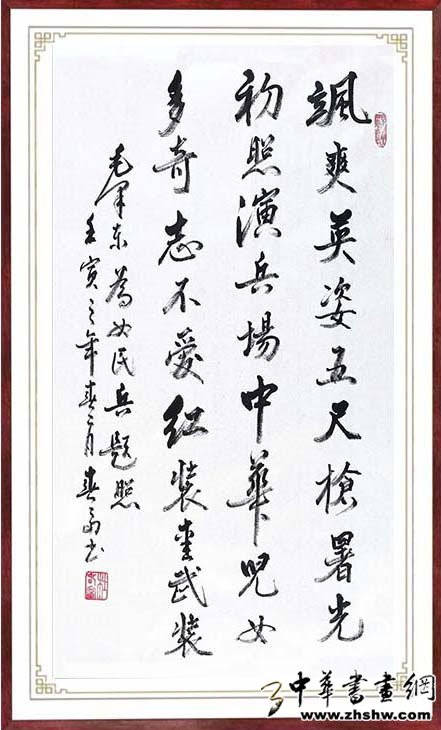 颯爽英姿五尺槍暑光
初照演兵場中華兒女
多奇志不愛红装爱武装
毛泽东為女民兵题照
壬寅之年春月春书
中華書畫網
www.zhshw.com